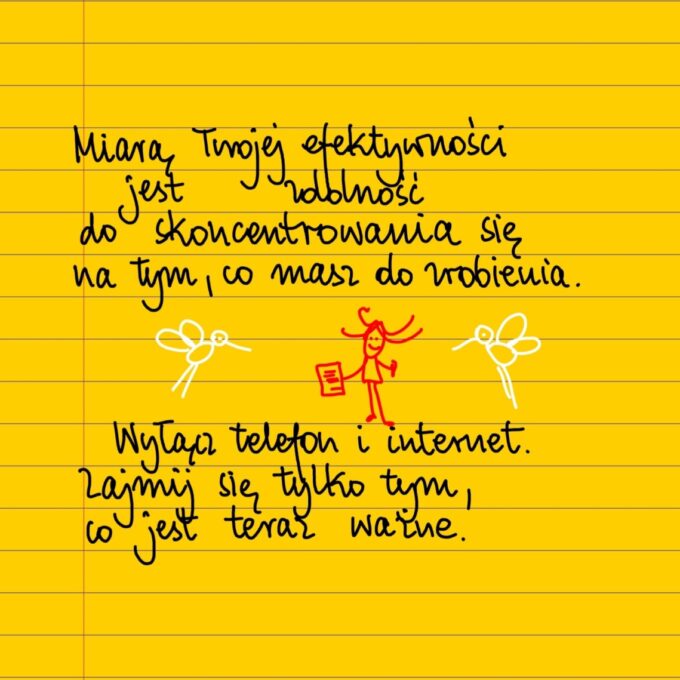 Miarą Twojej efektywności
jest zdolność
do skoncentrowania się
na tym, co masz do zrobienia.
Wyłącz telefon i internet.
Zajmij się tylko tym,
co jest teraz ważne.